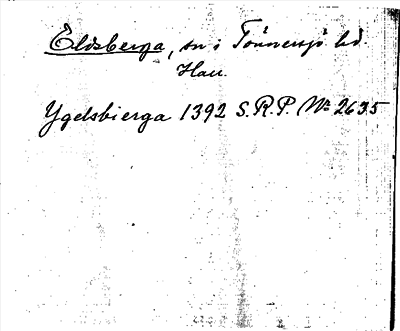 Eldsberga, sn i Tönnersjö hd.
Hall.
Ygelsbierga 1392 S.R.P. No 2635